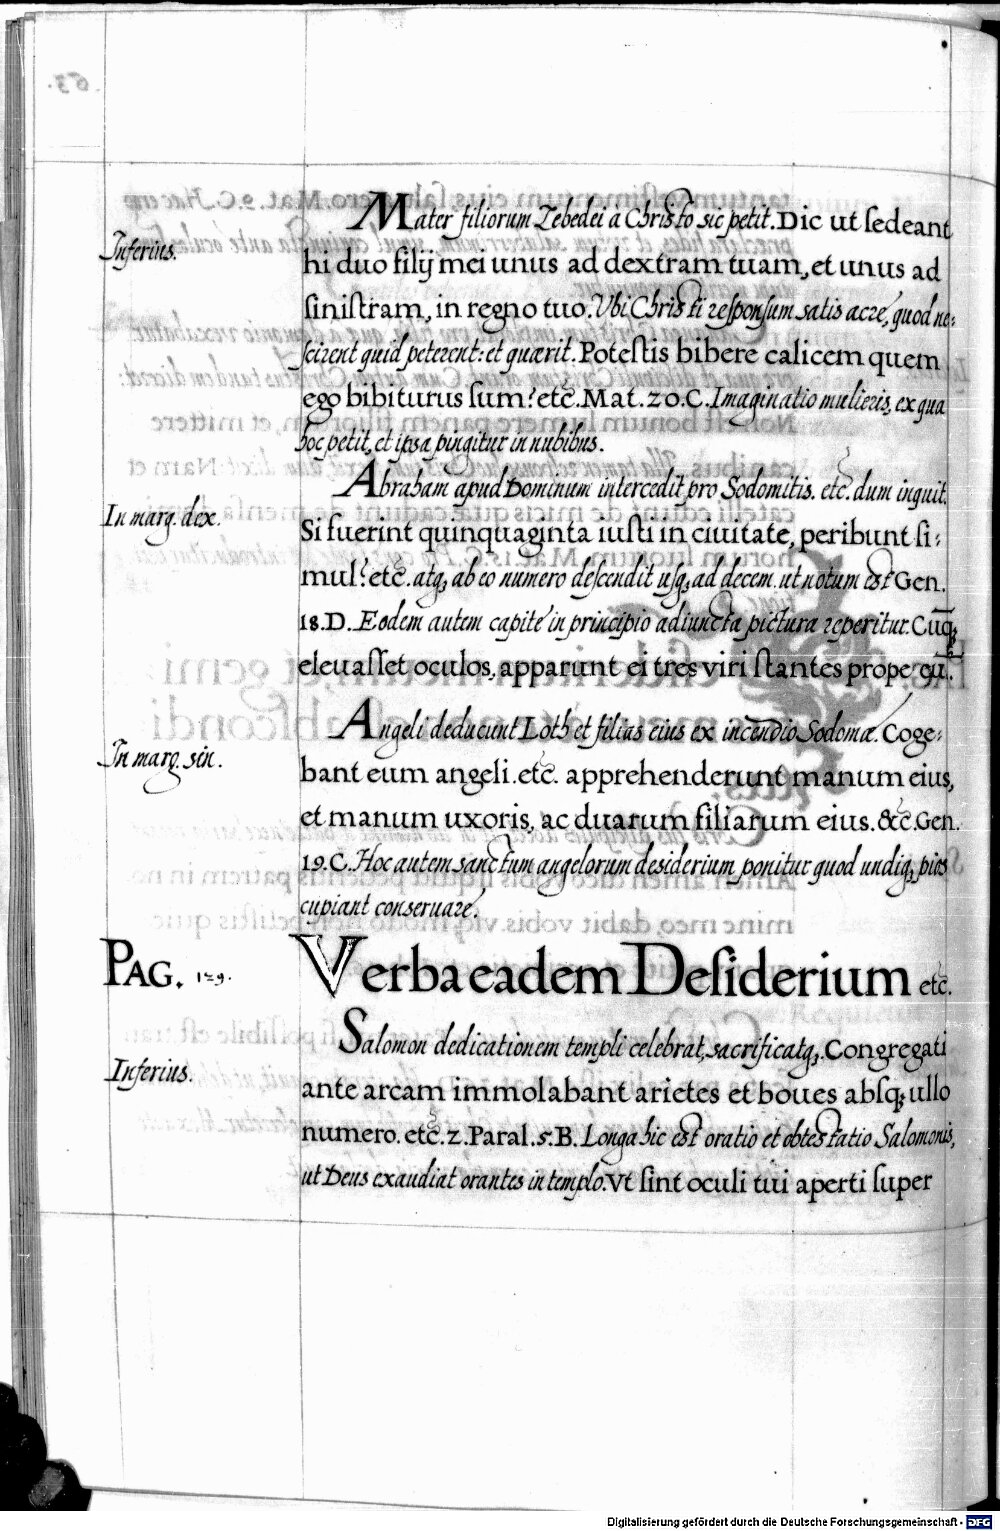 Mater filiorum Zebedei a Christo sic petit. Dic ut ſedeant
Inferius.
hi duo filij mei unus ad dextram tuam, et unus ad
ſiniſtram, in regno tuo. Vbi Christi reſponſum satis acre, quod ne:
ſcirent quid peterent: et quærit. Poteſtis bibere calicem quem
ego bibiturus ſum? etc. Mat. 20. C. Imaginatio mulieris, ex qua
hoc petit, et ipsa pingitur in nubibus.
Abraham apud Dominum intercedit pro Sodomitis. etc. dum inquit.
In marg. dex.
Si fuerint quinquaginta iuſti in ciuitate, peribunt ſi:
mul? etc. atq; ab eo numero deſcendit uſq; ad decem. ut notum est Gen.
18. D. Eodem autem capite in principio adiuncta pictura reperitur. Cūq;
eleuaſſet oculos, apparunt ei tres viri ſtantes prope eū.
Angeli deducunt Loth et filias eius ex incendio Sodomæ. Coge:
In marg. sin.
bant eum angeli. etc. apprehenderunt manum eius,
et manum uxoris, ac duarum filiarum eius. &c. Gen.
19. C. Hoc autem sanctum angelorum desiderium ponitur quod undiq; pios
cupiant conseruare.
PAG. 129.
Verba eadem Deſiderium etc.
Salomon dedicationem templi celebrat, sacrificatq;. Congregati
Inferius.
ante arcam immolabant arietes et boues abſq; ullo
numero. etc. 2. Paral. 5. B. Longa hic est oratio et obtestatio Salomonis,
ut Deus exaudiat orantes in templo. Vt ſint oculi tui aperti ſuper
Digitalisierung gefördert durch die Deutsche Forschungsgemeinschaft - DFG